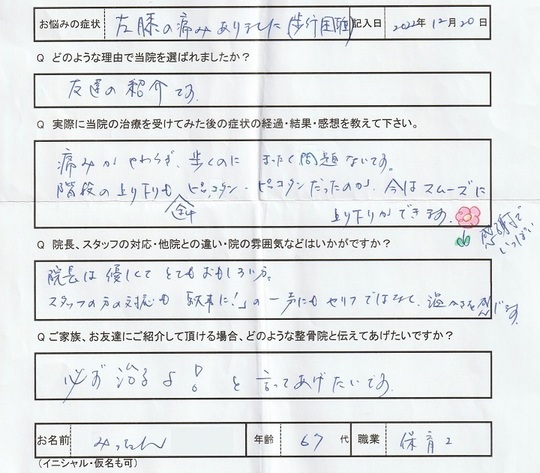 お悩みの症状 左膝の痛みありました(歩行困難) 記入日 2022年12月20日
Q どのような理由で当院を選ばれましたか？
友達の紹介です。
Q 実際に当院の治療を受けてみた後の症状の経過・結果・感想を教えて下さい。
痛みがやわらぎ、歩くのにまったく問題ないです。
階段の上り下りも ピッコタン・ピッコタンだったのが、今はスムーズに
上り下りができます。
感謝で
いっぱい
Q 院長、スタッフの対応・他院との違い・院の雰囲気などはいかがですか？
院長は優しくてとてもおもしろい方。
スタッフの方の対応も「お大事に！」の一声にもセリフではなく、温かさを感じます。
Q ご家族、お友達にご紹介して頂ける場合、どのような整骨院と伝えてあげたいですか？
必ず治るよ！と言ってあげたいです。
お名前 みっちゃん 年齢 67 代 職業 保育
(イニシャル・仮名も可)